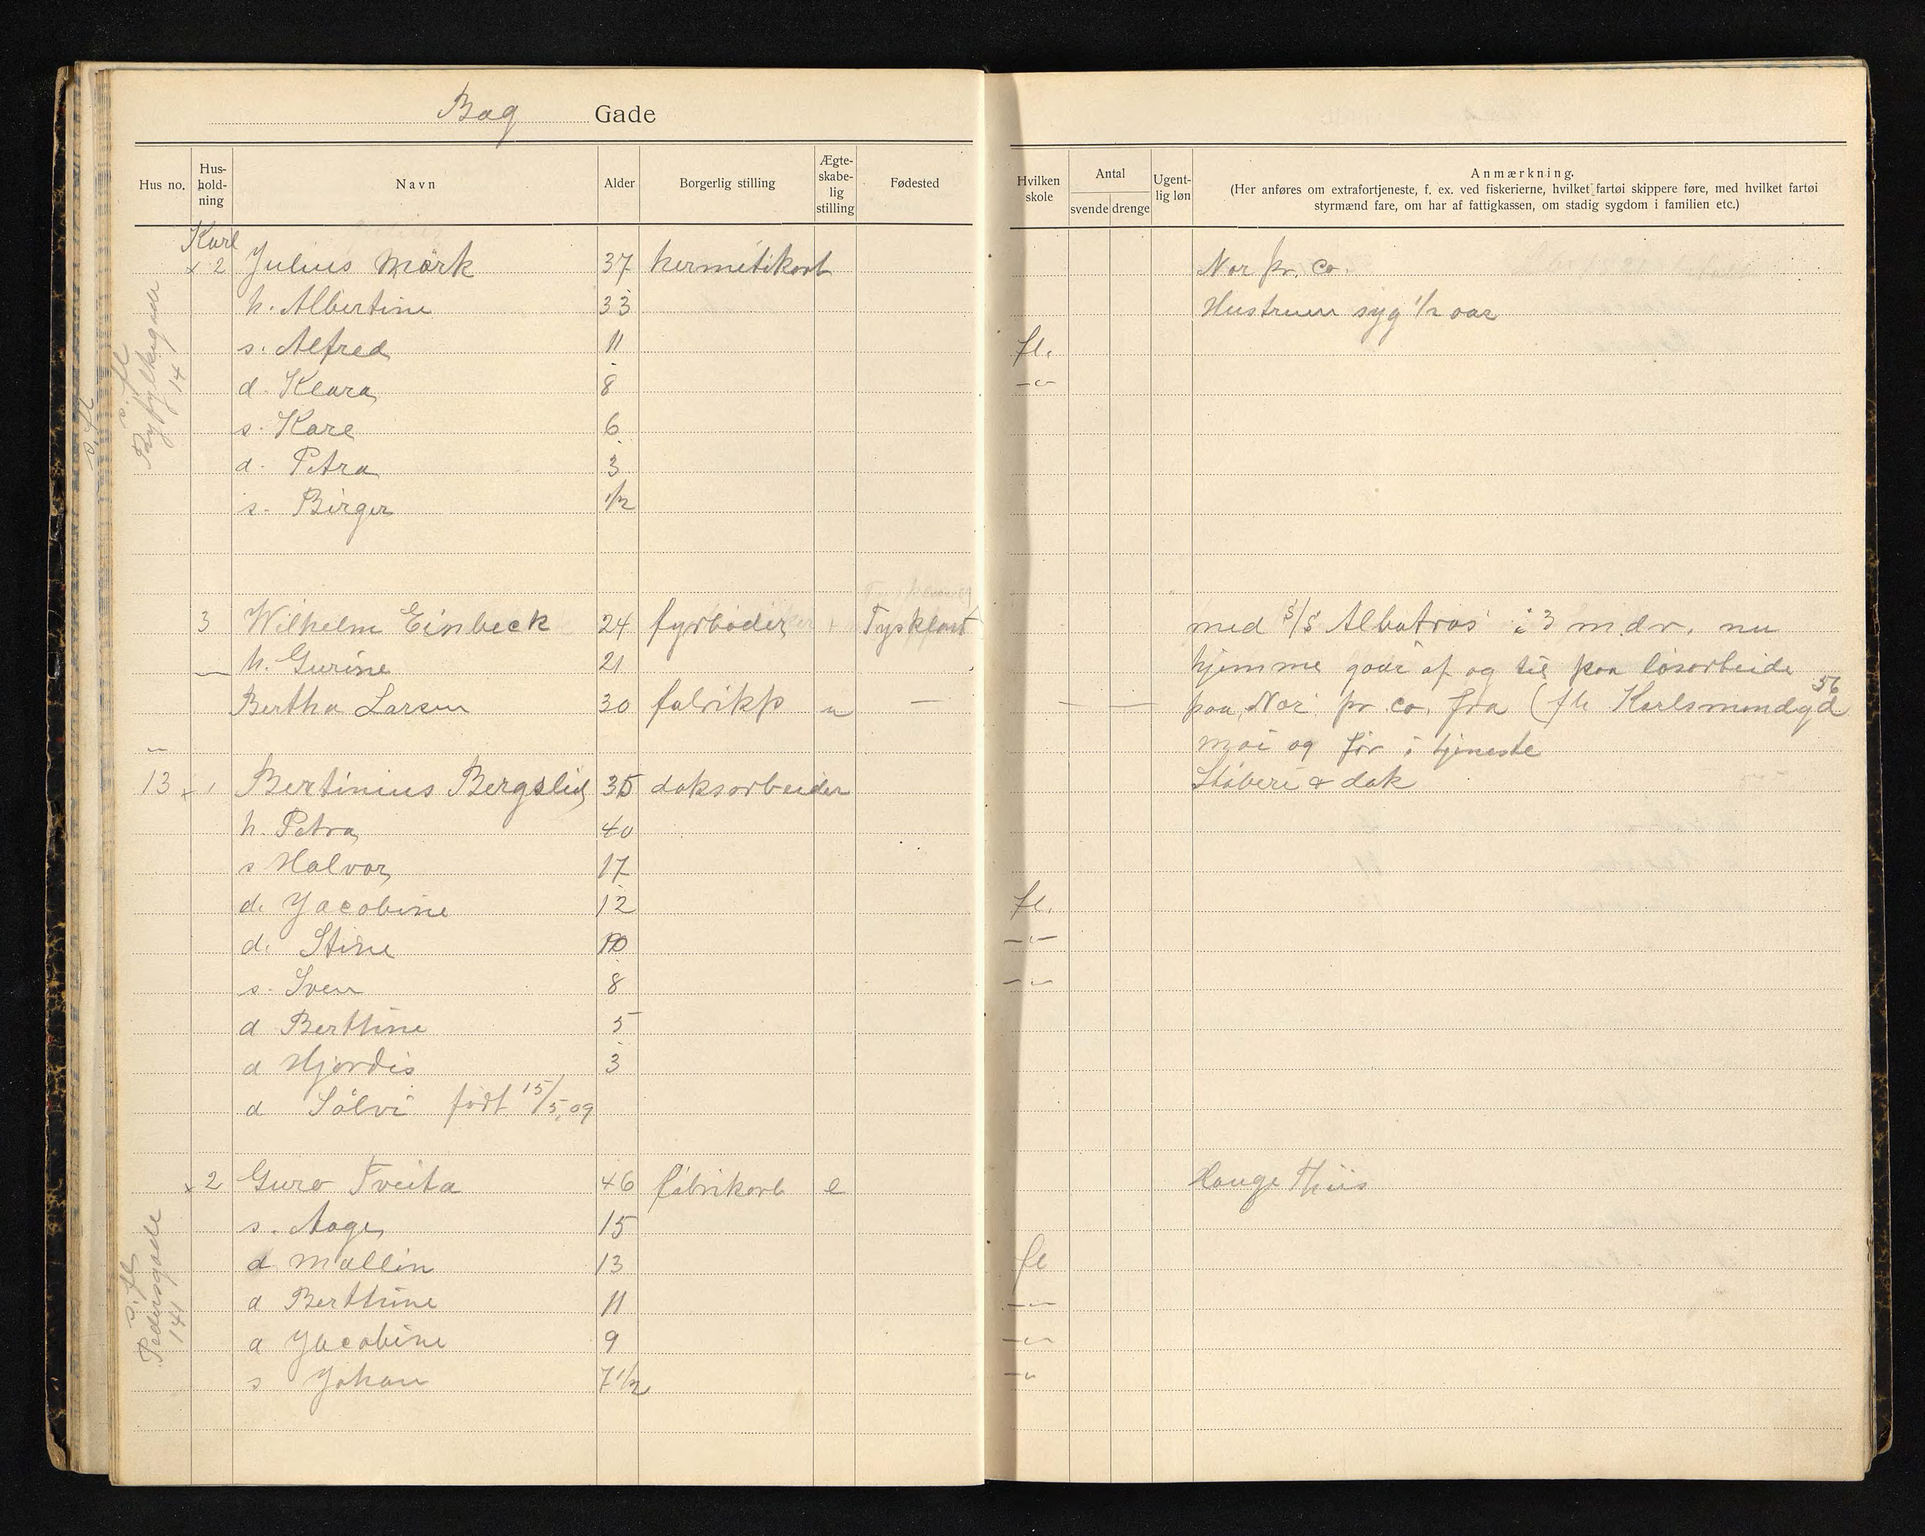 Bag Gade
Hus no. Hus-hold-ning Navn Alder Borgerlig stilling Ægte-skabe-lig stilling Fødested Hvilken skole Antal svende drenge Ugent-lig løn Anmærkning.
(Her anføres om extrafortjeneste, f. ex. ved fiskerierne, hvilket fartøi skippere føre, med hvilket fartøi
styrmænd fare, om har af fattigkassen, om stadig sygdom i familien etc.)
Karl
x 2 Julius Mørk 37 hermetikarb Nor pr. co.
h. Albertine 33 Hustruen syg 1/2 aar
s. Alfred 11 fl.
d. Klara 8 –"–
s. Kare 6
d. Petra 3
s. Birger 1/2
s. fl
Ryfylkegade
14
s. fl
3 Wilhelm Einbeck 24 fyrbøder Tyskland med S/S Albatros i 3 mdr. nu
h. Gurine 21 hjemme gaar af og til paa løsarbeide
— Bertha Larsen 30 fabrikp u — — — paa Nor pr. co. fra (fl. Karlsmindegd 56
mai og før i tjeneste
13 x 1 Bertinius Bergslid 35 doksarbeider Støberi & dok
h. Petra 40
s Halvor 17
d. Jacobine 12 fl.
d. Stine 10 –"–
s. Sven 8 –"–
d Berthine 5
d Hjørdis 3
d Sølvi født 15/5, 09
x 2 Guro Tveita 46 fabrikarb e Hauge Thiis
s. Aage 15
d Mallin 13 fl
d Berthine 11 –"–
d Jacobine 9 –"–
s Johan 7 1/2 –"
s. fl
Pedersgade
141